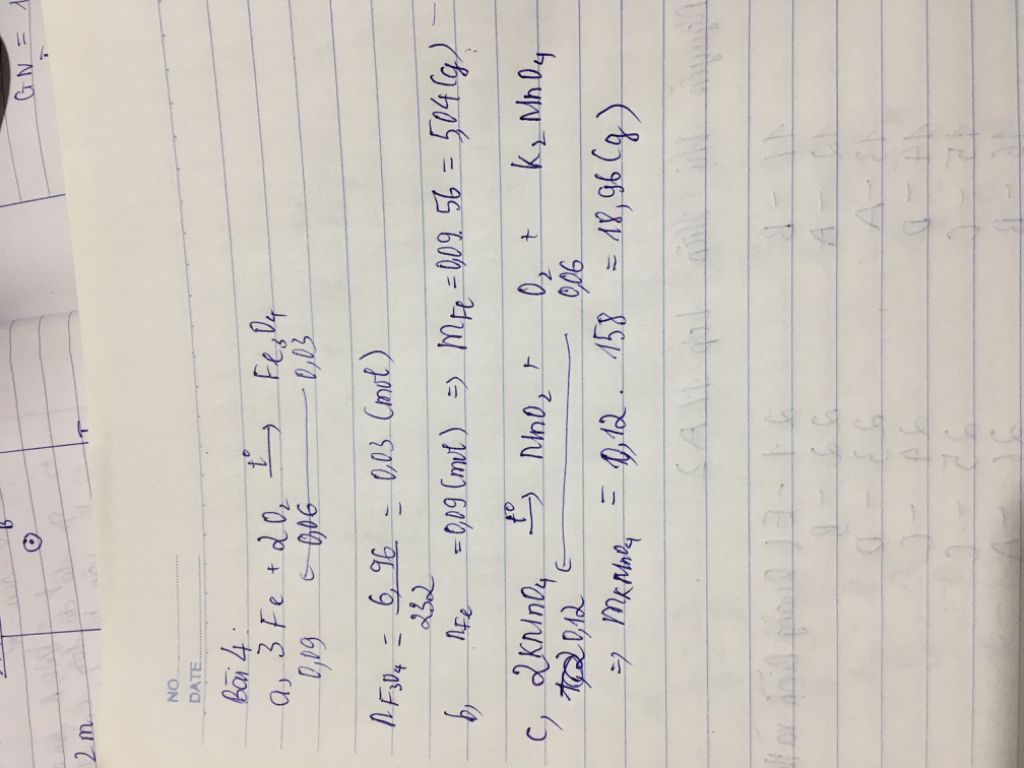 GN = 1
2 m
NO.
DATE
Bài 4:
a, 3 Fe + 2O₂ t° → Fe₃O₄
0,09 ← 0,06 0,03
nF₃O₄ = 6,96 / 232 = 0,03 (mol)
b, nFe = 0,09 (mol) => mFe = 0,09. 56 = 5,04 (g)
c, 2KMnO₄ t° → MnO₂ + O₂ + K₂MnO₄
0,12 ← 0,06
=> mKMnO₄ = 0,12 . 158 = 18,96 (g)